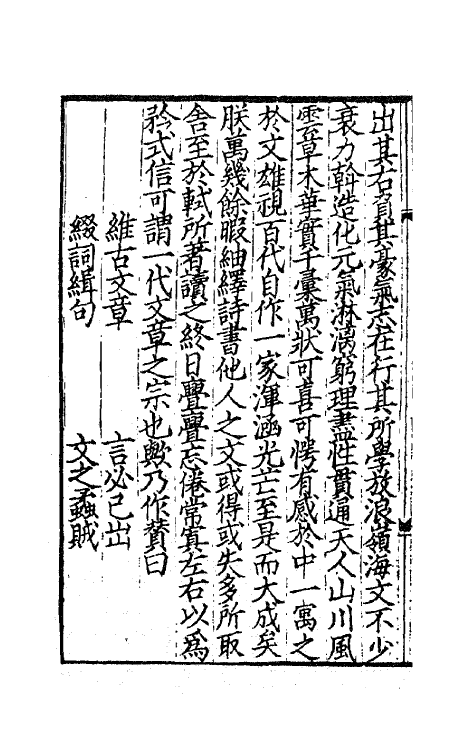 出其右負其豪氣志在行其所學放浪嶺海文不少
衰力斡造化元氣淋漓窮理盡性貫通天人山川風
雲草木華實千彙萬狀可喜可愕有感於中一寓之
於文雄視百代自作一家渾涵光芒至是而大成矣
朕萬幾餘暇紬繹詩書他人之文或得或失多所取
舍至於軾所著讀之終日亹亹忘倦常寘左右以為
矜式信可謂一代文章之宗也歟乃作贊曰
維古文章 言必己出
綴詞緝句 文之蟊賊